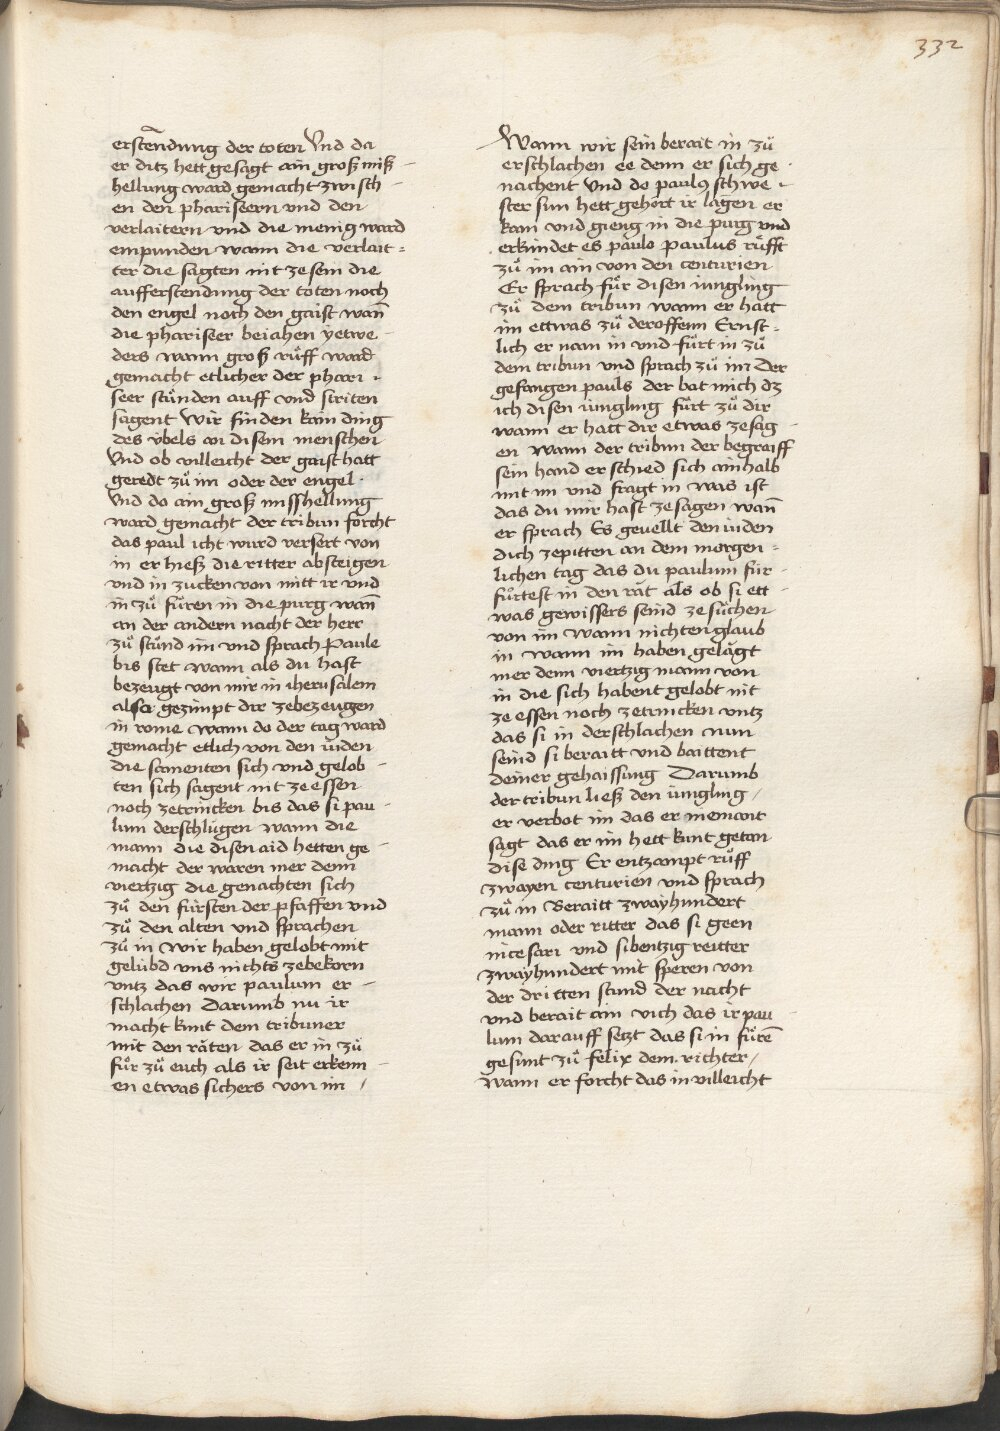 332
erstendung der toten Vnd da
er ditz hett gesagt ain groß miß
hellung ward gemacht zwisch
en den phariseern vnd den
verlaitern vnd die menig ward
empunden wann die verlait
ter die sagten nit ze sein die
aufferstendung der toten noch
den engel noch den gaist wan̄
die phariseer beiahen yetwe
ders wann groß růff ward
gemacht etlicher der phari
seer stůnden auff vnd striten
sagent Wir finden kain ding
des vbels an disem menschen
Vnd ob villeicht der gaist hatt
geredt zů im oder der engel
Vnd do ain groß misshellung
ward gemacht der tribun forcht
das paul icht wurd versert von
in er hieß die ritter absteigen
vnd in zucken von mitt ir vnd
in zů fůren in die purg wan̄
an der andern nacht der herr
zů stůnd im vnd sprach Paule
bis stet wann als du hast
bezeugt von mir in iherusalem
also gezimpt dir zebezeugen
in rome wann do der tag ward
gemacht etlich von den iuden
die samenten sich vnd gelob
ten sich sagent nit ze essen
noch zetrincken bis das si pau
lum derschlügen wann die
mann die disen aid hetten ge
macht der waren mer denn
viertzig die genachten sich
zů den fürsten der pfaffen vnd
zů den alten vnd sprachen
zů in Wir haben gelobt mit
gelübd vns nichts zebekorn
vntz das wir paulum er
schlachen Darumb nu ir
macht kunt dem tribuner
mit den räten das er in zů
fůr zů euch als ir seit erkenn
en etwas sichers von im /
Wann wir sein berait in zů
erschlachen ee denn er sich ge
nachent Vnd do paulus schwe
ster sun hett gehört ir lagen er
kam vnd gieng in die purg vnd
erkindet es paulo paulus růfft
zů im ain von den centurien
Er sprach für disen iungling
zů dem tribun wann er hatt
im ettwas zů deroffenn Ernst
lich er nam in vnd fůrt in zů
dem tribun vnd sprach zů im Der
gefangen pauls der bat mich dz
ich disen iungling fůrt zů dir
wann er hatt dir etwas zesag
en wann der tribun der begraiff
sein hand er schied sich ainhalb
mit im vnd fragt in was ist
das du mir hast zesagen wan̄
er sprach Es geuellt den iuden
dich zepitten an dem morgen
lichen tag das du paulum für
fůrtest in den rät als ob si ett
was gewissers seind ze sůchen
von im wann nichten glaub
in wann im haben gelägt
mer denn viertzig mann von
in die sich habent gelobt nit
ze essen noch zetrincken vntz
das si in derschlachen nun
seind si beraitt vnd baittent
deiner gehaissung Darumb
der tribun ließ den iungling /
er verbot im das er niemant
sagt das er im hett kunt getan
dise ding Er entzampt růff
zwayen centurien vnd sprach
zů in Beraitt zwayhundert
mann oder ritter das si geen
in cesari vnd sibentzig reitter
zwayhundert mit speren von
der dritten stund der nacht
vnd berait ain vich das ir pau
lum darauff setzt das si in fůrē
gesunt zů felix dem richter /
wann er forcht das in villeicht